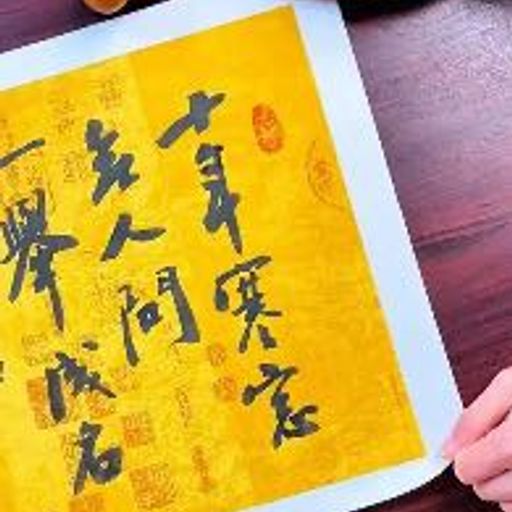 十年寒窓
無人問
一舉成名